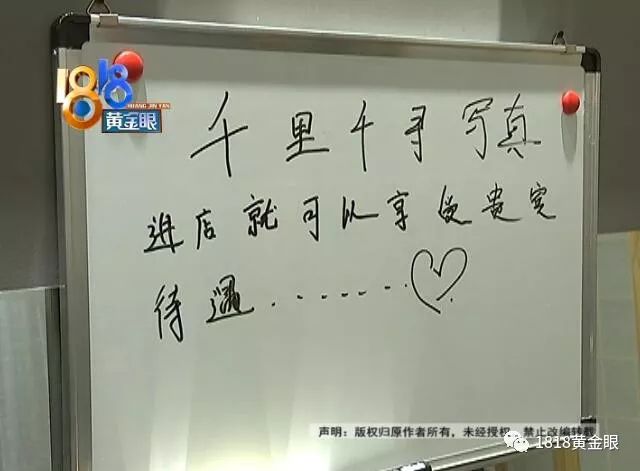 1818
HUANG JIN YAN
黄金眼
千里千寻写真
进店就可以享受贵宾
待遇.......
声明：版权归原作者所有，未经授权，禁止改编转载
1818黄金眼